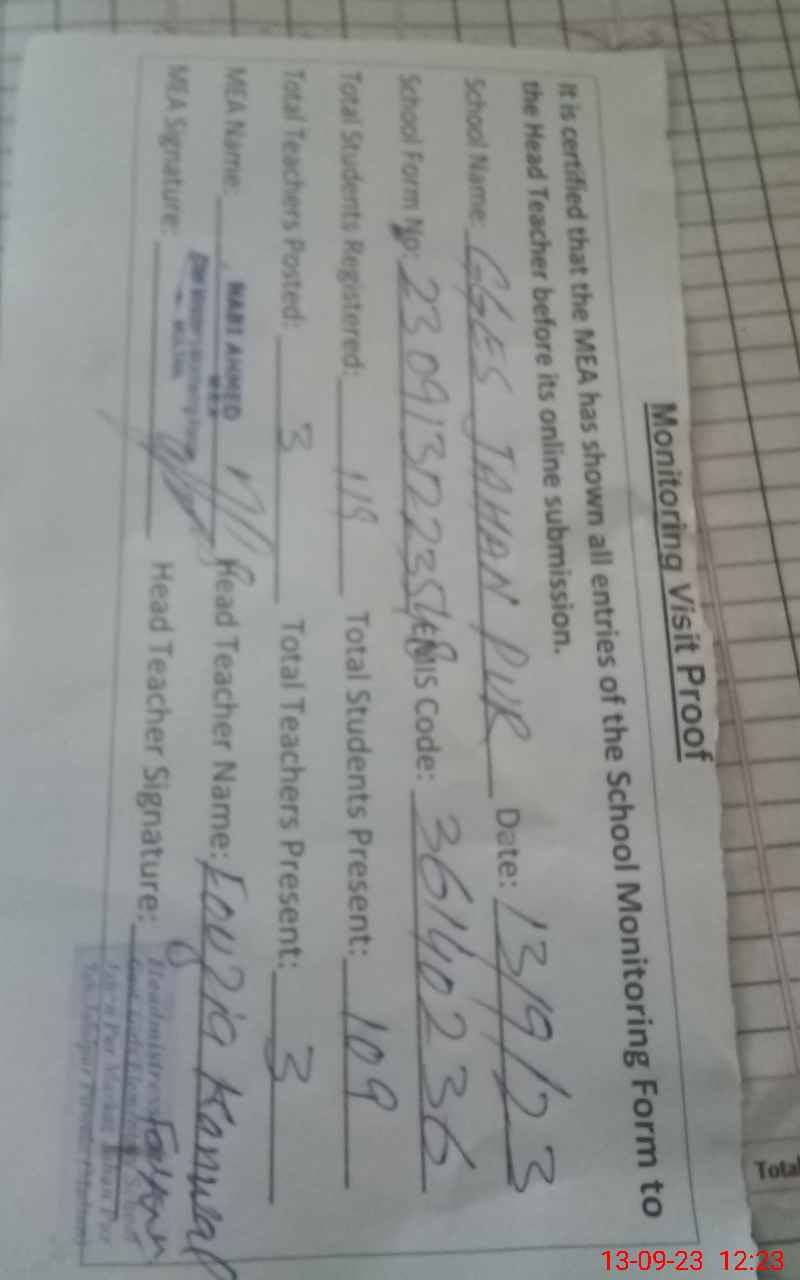 Monitoring Visit Proof
It is certified that the MEA has shown all entries of the School Monitoring Form to
the Head Teacher before its online submission.
School Name: GGES JAHAN PUR Date: 13/9/23
School Form No: EMIS Code: 36140236
Total Students Registered: 119 Total Students Present: 109
Total Teachers Posted: 3 Total Teachers Present: 3
MEA Name: NABI AHMED Head Teacher Name: Fouzia Kanwal
MEA
MEA Signature: Head Teacher Signature:
Headmistress
Total
13-09-23 12:23